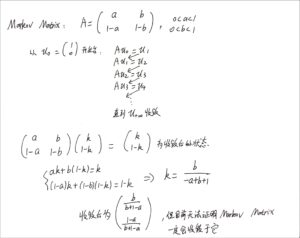 Markov Matrix: A = ( a b ; 1-a 1-b ), 0<a<1
0<b<1
从 u₀ = ( 1 ; 0 ) 开始:
Au₀ = u₁
Au₁ = u₂
Au₂ = u₃
Au₃ = u₄
⋮
直到 收敛
( a b ; 1-a 1-b ) ( k ; 1-k ) = ( k ; 1-k ) 为收敛后的状态.
{ ak+b(1-k)=k
(1-a)k+(1-b)(1-k)=1-k ⟹ k = b/(-a+b+1)
收敛后为 ( b/(b+1-a) ; (1-a)/(b+1-a) ), 但目前无法证明 Markov Matrix
一定会收敛于它